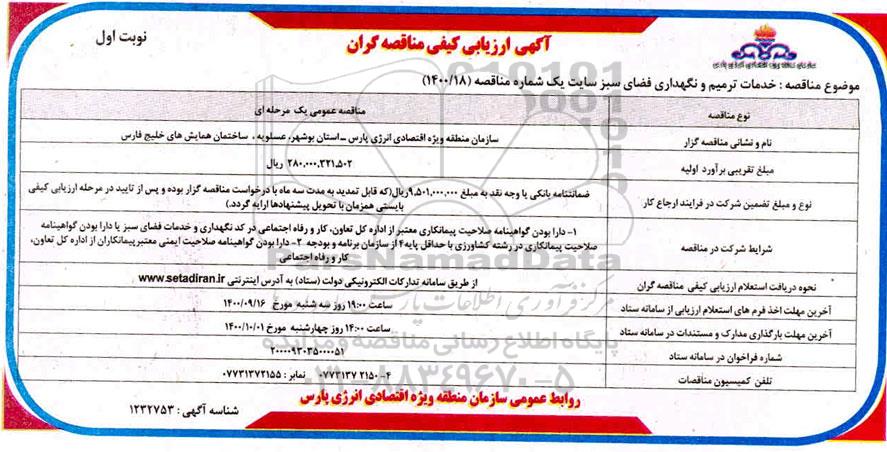 آگهی ارزیابی کیفی مناقصه گران
نوبت اول
موضوع مناقصه : خدمات ترمیم و نگهداری فضای سبز سایت یک شماره مناقصه (۱۴۰۰/۱۸)
نوع مناقصه
مناقصه عمومی یک مرحله ای
نام و نشانی مناقصه گزار
سازمان منطقه ویژه اقتصادی انرژی پارس – استان بوشهر، عسلویه ، ساختمان همایش های خلیج فارس
مبلغ تقریبی برآورد اولیه
۲۸۰،۰۰۰،۳۲۱،۵۰۲ ریال
نوع و مبلغ تضمین شرکت در فرایند ارجاع کار
ضمانتنامه بانکی یا وجه نقد به مبلغ ۹،۵۰۱،۰۰۰،۰۰۰ریال(که قابل تمدید به مدت سه ماه با درخواست مناقصه گزار بوده و پس از تایید در مرحله ارزیابی کیفی
بایستی همزمان با تحویل پیشنهادها ارایه گردد.)
شرایط شرکت در مناقصه
۱- دارا بودن گواهینامه صلاحیت پیمانکاری معتبر از اداره کل تعاون، کار و رفاه اجتماعی در کد نگهداری و خدمات فضای سبز یا دارا بودن گواهینامه
صلاحیت پیمانکاری در رشته کشاورزی با حداقل پایه۴ از سازمان برنامه و بودجه ۲- دارا بودن گواهینامه صلاحیت ایمنی معتبرپیمانکاران از اداره کل تعاون،
کار و رفاه اجتماعی
نحوه دریافت استعلام ارزیابی کیفی مناقصه گران
از طریق سامانه تدارکات الکترونیکی دولت (ستاد) به آدرس اینترنتی www.setadiran.ir
آخرین مهلت اخذ فرم های استعلام ارزیابی از سامانه ستاد
ساعت ۱۹:۰۰ روز سه شنبه مورخ ۱۴۰۰/۰۹/۱۶
آخرین مهلت بارگذاری مدارک و مستندات در سامانه ستاد
ساعت ۱۴:۰۰ روز چهارشنبه مورخ ۱۴۰۰/۱۰/۰۱
شماره فراخوان در سامانه ستاد
۲۰۰۰۰۹۳۰۳۵۰۰۰۰۵۱
تلفن کمیسیون مناقصات
۴-۰۷۷۳۱۳۷ ۲۱۵۰ نمابر : ۰۷۷۳۱۳۷۲۱۵۵
ParsNamadData
مرکز فرآوری اطلاعات پارس
پایگاه اطلاع رسانی مناقصه و مزایده
۰۲۱-۸۸۳۴۹۶۷۰-۵
روابط عمومی سازمان منطقه ویژه اقتصادی انرژی پارس
شناسه آگهی : ۱۲۳۲۷۵۳